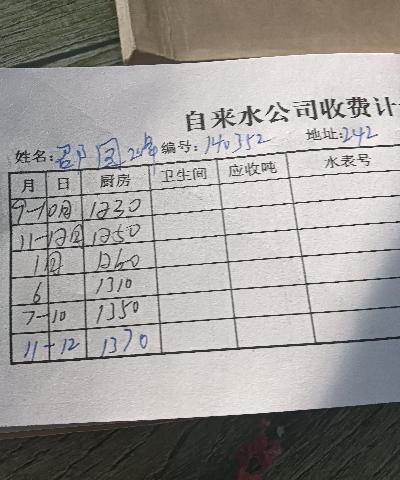 自来水公司收费计
姓名: 邵 国 编号: 140352 地址: 242
月 日 厨房 卫生间 应收吨 水表号
9-10月 1230
11-12月 1250
1月 1260
6 1310
7-10 1350
11-12 1370